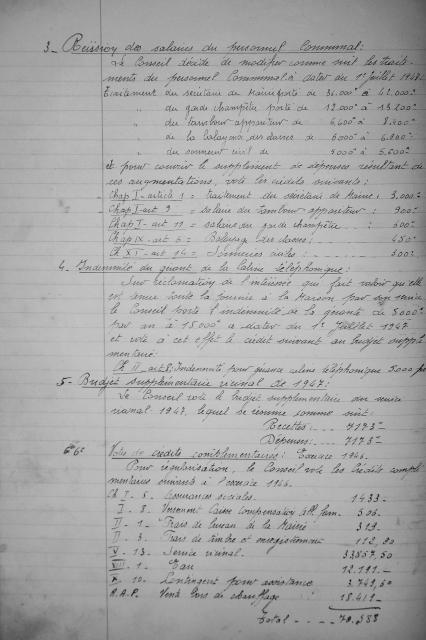 3 - Révision des salaires du personnel Communal:
Le Conseil décide de modifier comme suit les traite-
ments du personnel Communal à dater du 1er Juillet
Traitement du secrétaire de Mairie porté de 36.000 à 42.000
" du garde champêtre porté de 12.000 à 13.200
" du tambour appariteur de 6.400 à
" de la balayeuse des classes de 6.000 à
" du sonneur civil de à 5.600
et pour couvrir le supplément de dépenses résultant de
ces augmentations, vote les crédits suivants:
Chap I - article 1 = traitement du secrétaire de Mairie: 3.000
Chap I - art 9 = salaire du tambour appariteur: 900
Chap I - art 11 = salaire du garde champêtre: 600
Chap IX - art 6 = Balayage des classes: 450
Ch XI - art 14 = Sonneries civiles: 300
4 - Indemnité du gérant de la Cabine téléphonique:
Sur réclamation de l'intéressée qui fait valoir qu'elle
est tenue toute la journée à la Maison par son service
le Conseil porte l'indemnité de la gérante de
par an à 15.000 à dater du 1er Juillet 1947
et vote à cet effet le crédit suivant au budget supplé-
mentaire:
Ch II - art 8: Indemnité pour gérance cabine téléphonique
5 - Budget supplémentaire vicinal de 1947:
Le Conseil vote le budget supplémentaire du service
vicinal 1947, lequel se résume comme suit:
Recettes: - - 7173 -
Dépenses: - - - 7173 -
6 - Votes de crédits complémentaires: Exercice 1946.
Pour régularisation, le Conseil vote les crédits complé-
mentaires suivants à l'exercice 1946.
Ch I - 5. Assurances sociales. 1433 -
I - 8. Versement Caisse Compensation All. fam. 506 -
II - 1 - Frais de bureau de la Mairie 319 -
II - 3. Frais de timbre et enregistrement 112,90
V - 13. Service vicinal. 33857,50
VIII - 1 - Eau 12.191 -
X - 10. Contingent pour assistance 3.749,60
R.A.P. Vente bois de chauffage 18.419 -
Total - - - - 70.588